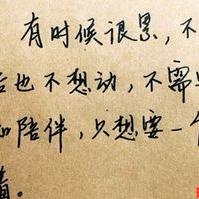 有时候很累，不
也不想动，不需
陪伴，只想要一个
着。